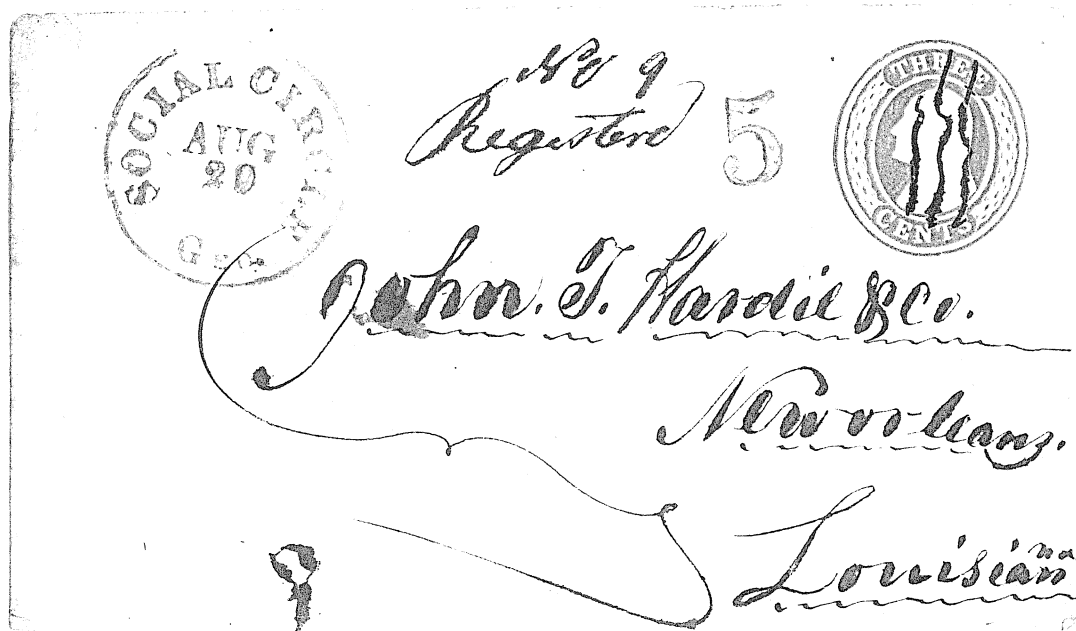 SOCIAL CIRCLE
AUG
20
Geo.
No 9
Registered
5
THREE
CENTS
John. T. Hardie & Co.
New orleans.
Louisiana